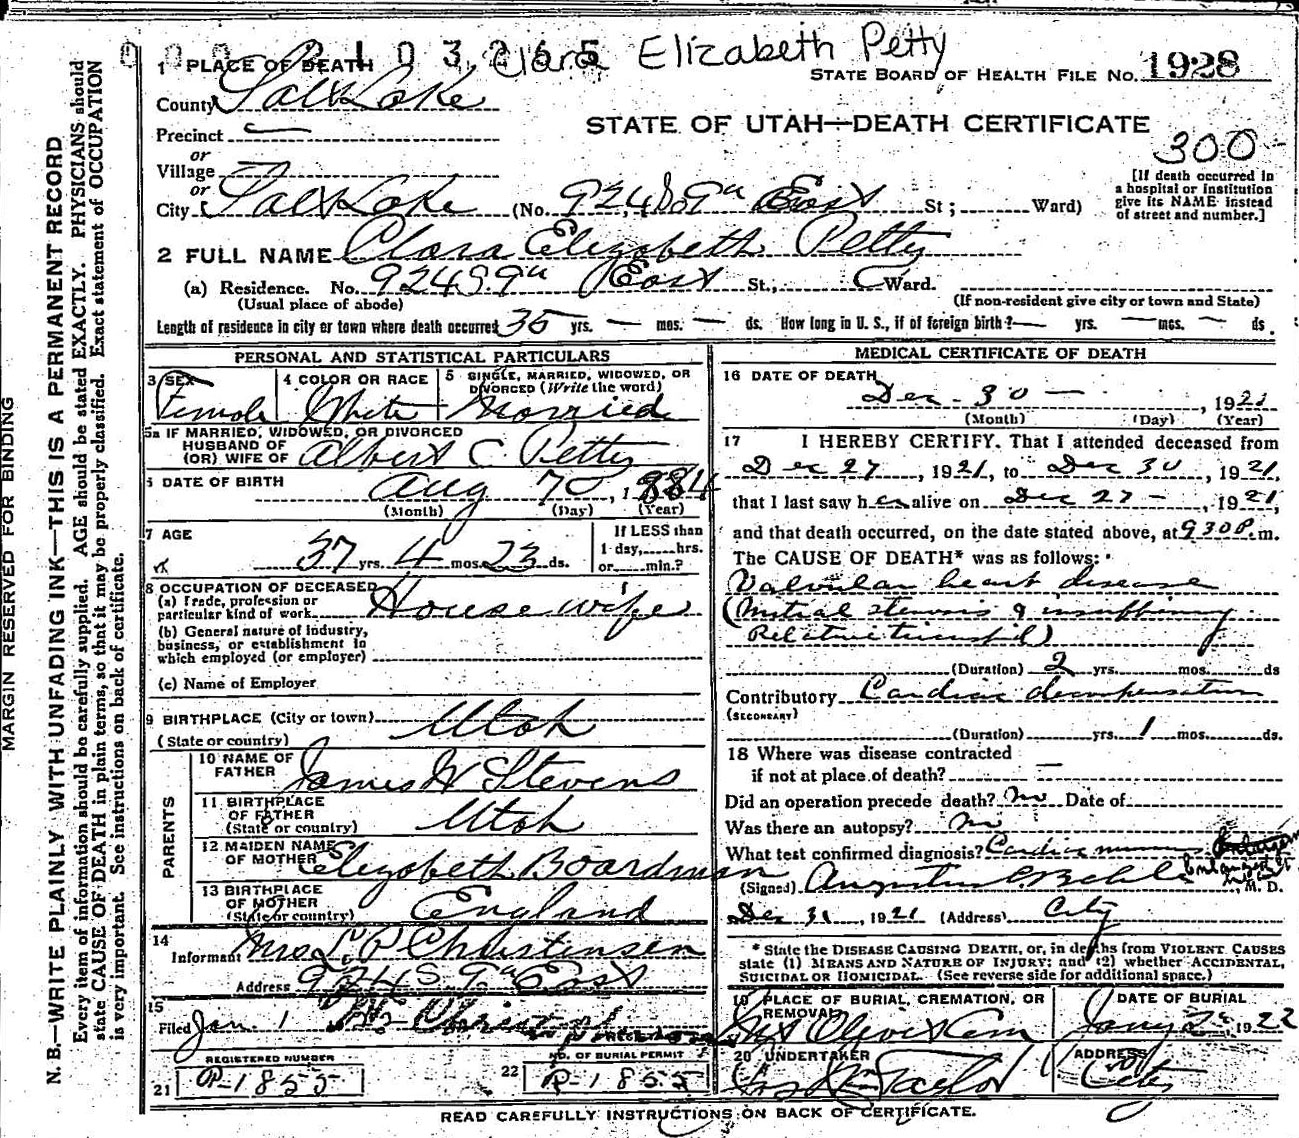 103265 Clara Elizabeth Petty
STATE BOARD OF HEALTH FILE NO. 1928
1 PLACE OF DEATH
County Salt Lake
STATE OF UTAH—DEATH CERTIFICATE
300-
Precinct
or
Village
or
City Salt Lake (No. 924 So 9th East St; Ward)
[If death occurred in
a hospital or institution
give its NAME instead
of street and number.]
2 FULL NAME Clara Elizabeth Petty
(a) Residence. No. 924 S 9th East St., Ward.
(Usual place of abode) (If non-resident give city or town and State)
Length of residence in city or town where death occurred 35 yrs. — mos. — ds. How long in U. S., if of foreign birth? — yrs. — mos. — ds.
PERSONAL AND STATISTICAL PARTICULARS
3 SEX Female
4 COLOR OR RACE White
5 SINGLE, MARRIED, WIDOWED, OR
DIVORCED (Write the word)
Married
5a IF MARRIED, WIDOWED, OR DIVORCED
HUSBAND OF
(OR) WIFE OF Albert C. Petty
6 DATE OF BIRTH Aug 7, 1884
(Month) (Day) (Year)
7 AGE 37 yrs. 4 mos. 23 ds.
If LESS than
1 day,......hrs.
or......min.?
8 OCCUPATION OF DECEASED
(a) Trade, profession or
particular kind of work Housewife
(b) General nature of industry,
business, or establishment in
which employed (or employer)
(c) Name of Employer
9 BIRTHPLACE (City or town) Utah
(State or country)
PARENTS
10 NAME OF
FATHER James W Stevens
11 BIRTHPLACE
OF FATHER
(State or country) Utah
12 MAIDEN NAME
OF MOTHER Elizabeth Boardman
13 BIRTHPLACE
OF MOTHER
(State or country) England
14
Informant Mrs L P Christensen
Address 924 S 9th East
15
Filed Jan. 1
REGISTERED NUMBER
21 P-1855
NO. OF BURIAL PERMIT
22 P-1855
MEDICAL CERTIFICATE OF DEATH
16 DATE OF DEATH
Dec. 30 —, 1921
(Month) (Day) (Year)
17 I HEREBY CERTIFY. That I attended deceased from
Dec 27, 1921, to Dec 30, 1921,
that I last saw her alive on Dec 27 —, 1921,
and that death occurred, on the date stated above, at 930 P. m.
The CAUSE OF DEATH* was as follows:
Valvular heart disease
(Mitral stenosis & insufficiency
Relative tricuspid)
(Duration) 2 yrs. mos. ds
Contributory Cardiac decompensation
(SECONDARY)
(Duration) yrs. 1 mos. ds.
18 Where was disease contracted
if not at place of death? —
Did an operation precede death? no Date of
Was there an autopsy? no
What test confirmed diagnosis? Cardiac murmurs
(Signed) , M. D.
Dec 31, 1921 (Address) City
* State the DISEASE CAUSING DEATH, or, in deaths from VIOLENT CAUSES
state (1) MEANS AND NATURE OF INJURY; and (2) whether ACCIDENTAL,
SUICIDAL OR HOMICIDAL. (See reverse side for additional space.)
19 PLACE OF BURIAL, CREMATION, OR
REMOVAL
Mt Olivet Cem
DATE OF BURIAL
Jany 2, 1922
20 UNDERTAKER
Taylor
ADDRESS
City
READ CAREFULLY INSTRUCTIONS ON BACK OF CERTIFICATE.
MARGIN RESERVED FOR BINDING
N. B.—WRITE PLAINLY WITH UNFADING INK—THIS IS A PERMANENT RECORD
Every item of information should be carefully supplied. AGE should be stated EXACTLY. PHYSICIANS should
state CAUSE OF DEATH in plain terms, so that it may be properly classified. Exact statement of OCCUPATION
is very important. See instructions on back of certificate.